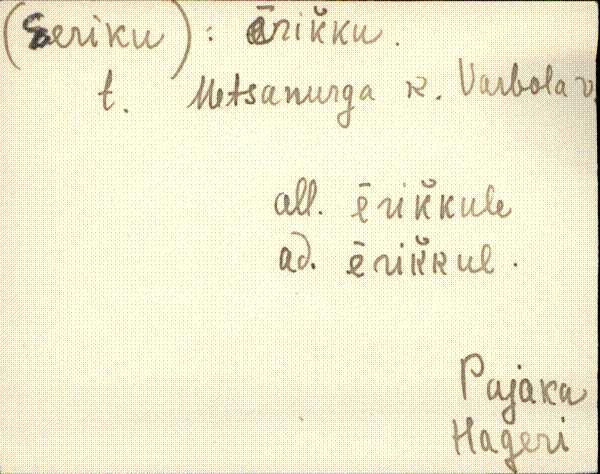 (Eeriku) : ērik̆ku.
t. Metsanurga k. Varbola v.
all. ērik̆kule
ad. ērik̆kul.
Pajaka
Hageri